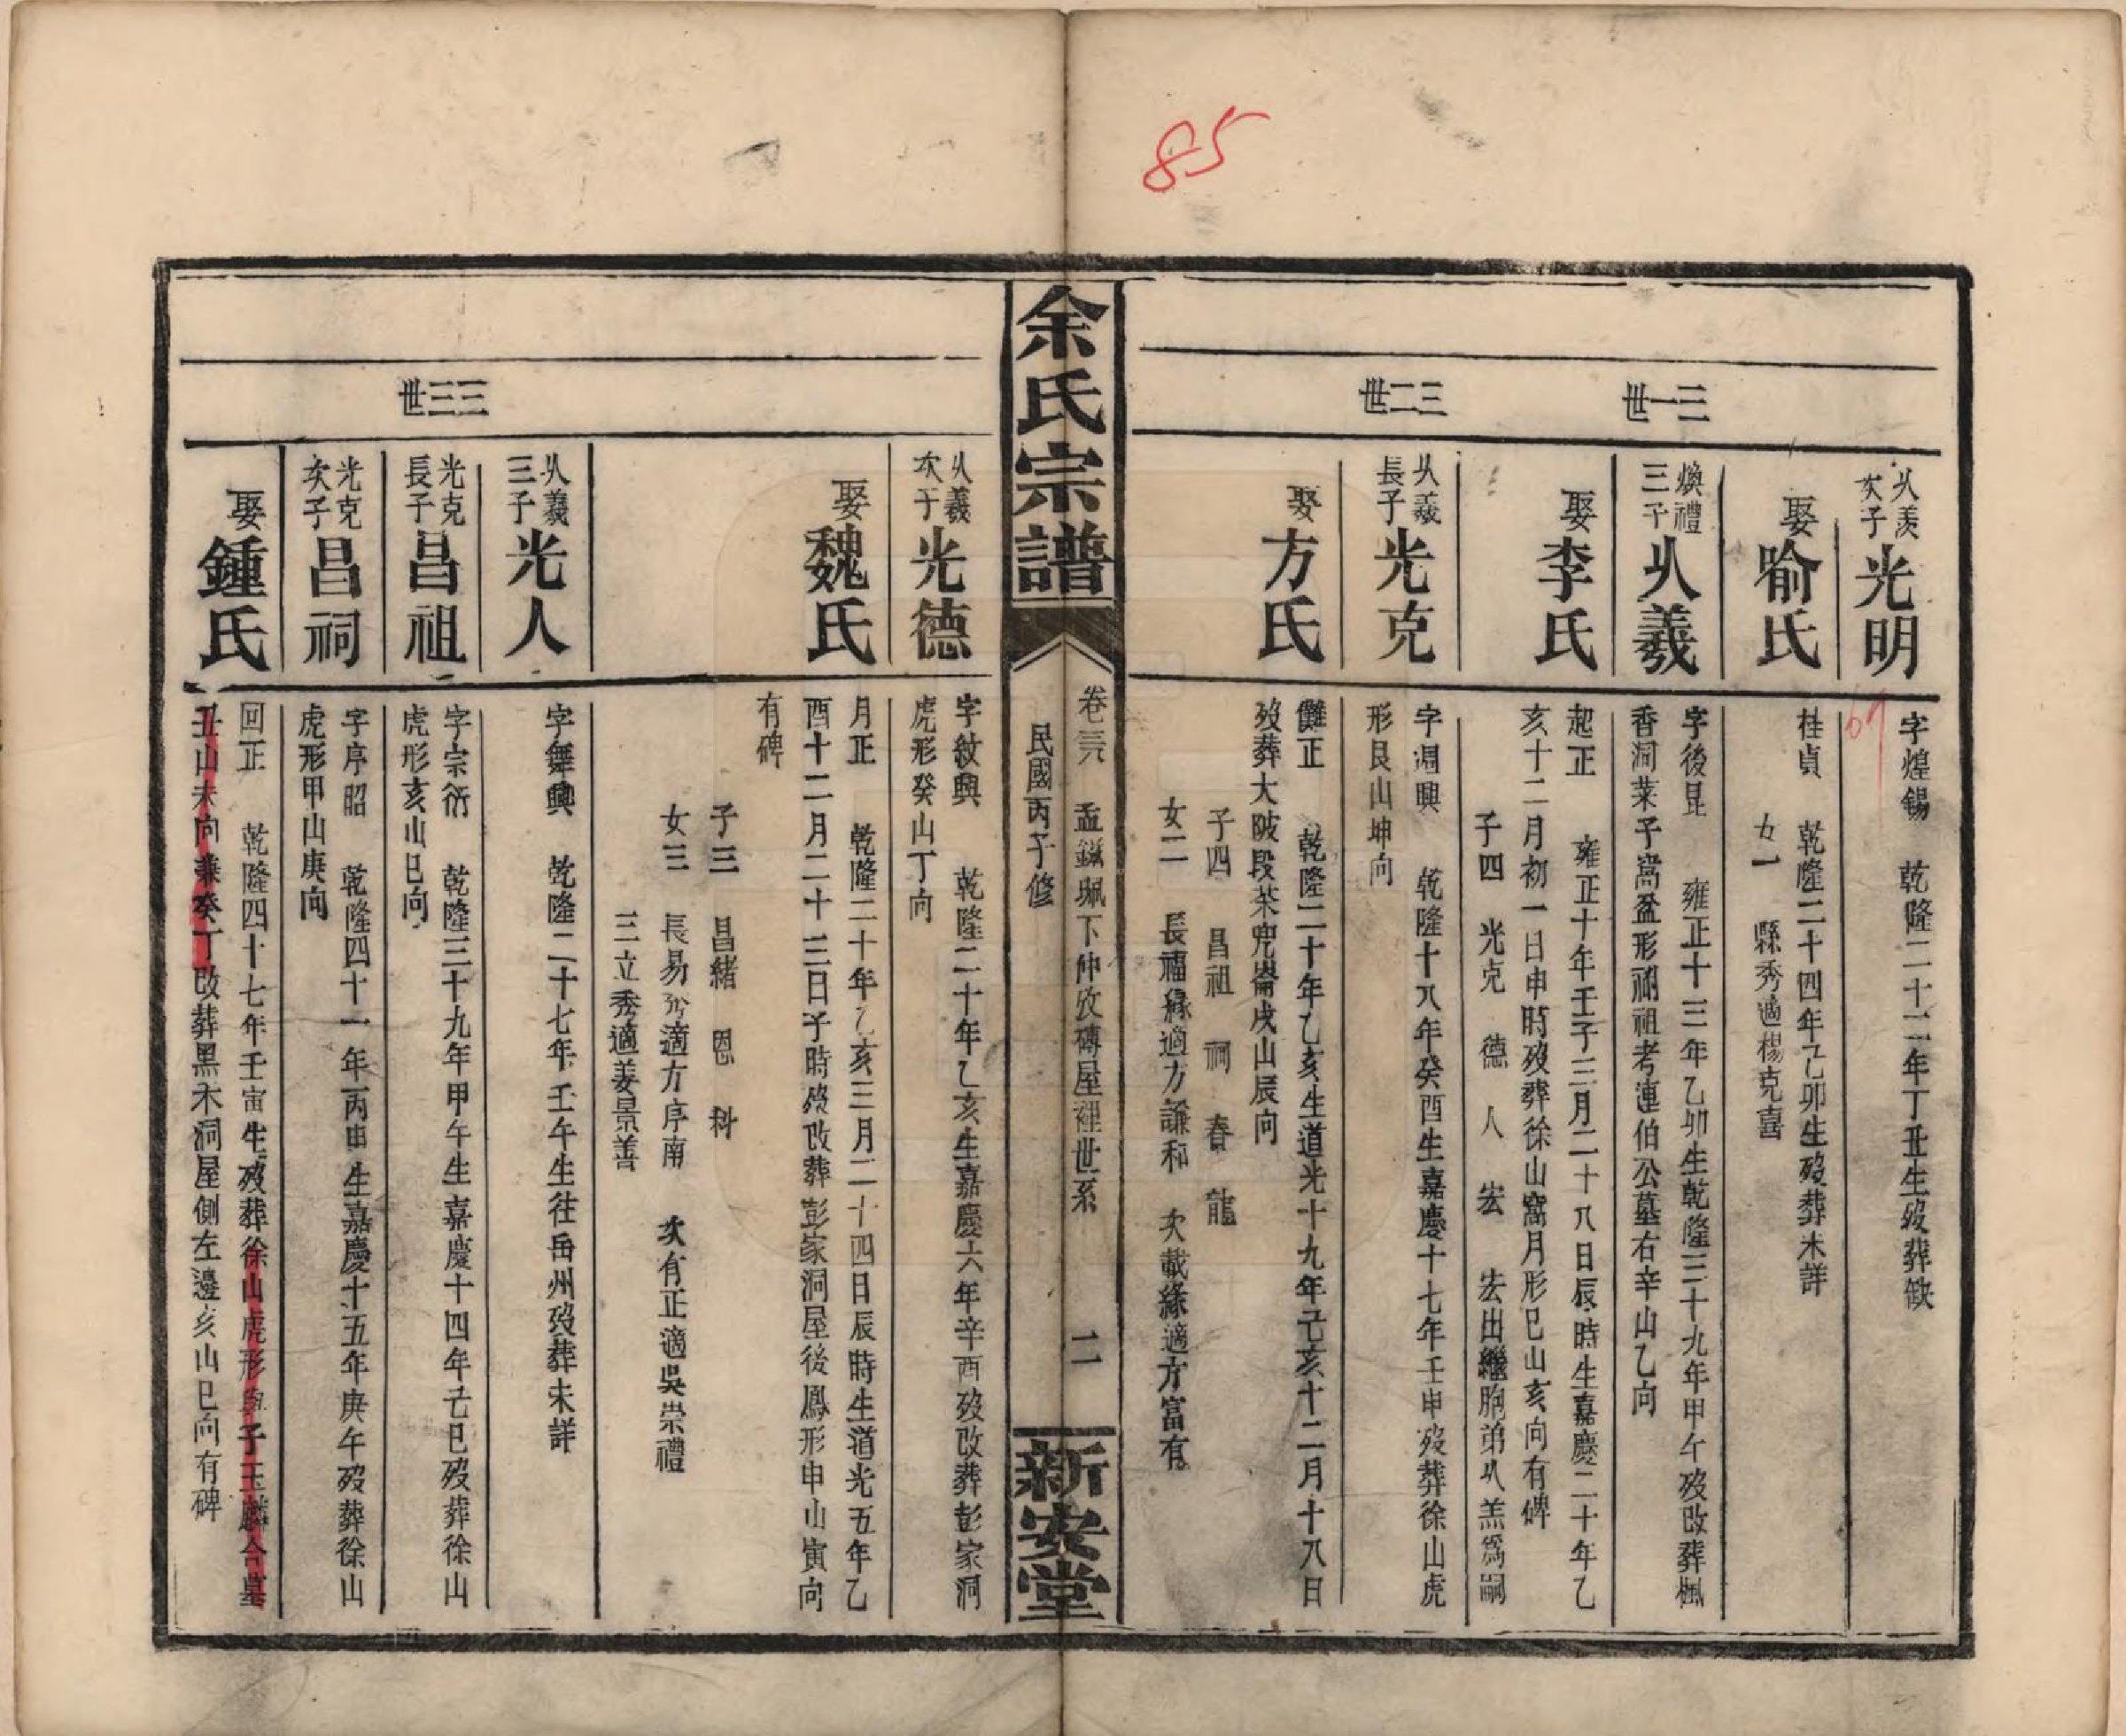 85
三一世
三二世
㕥羨次子
光明
字煌錫 乾隆二十二年丁丑生歿葬缺
69
娶喻氏
桂貞 乾隆二十四年乙卯生歿葬未詳
女一 縣秀適楊克喜
煥禮三子
㕥羲
字後昆 雍正十三年乙卯生乾隆三十九年甲午歿改葬楓
香洞菜子窩盈形祔祖考連伯公墓右辛山乙向
娶李氏
起正 雍正十年壬子三月二十八日辰時生嘉慶二十年乙
亥十二月初一日申時歿葬徐山窩月形巳山亥向有碑
子四 光克 德 人 宏 宏出繼胞弟㕥羔爲嗣
㕥羲長子
光克
字凋興 乾隆十八年癸酉生嘉慶十七年壬申歿葬徐山虎
形艮山坤向
娶方氏
儺正 乾隆二十年乙亥生道光十九年己亥十二月十八日
歿葬大陂段茶兜崙戌山辰向
子四 昌祖 祠 春 龍
女二 長福緣適方謙和 次載緣適方富有
余氏宗譜
卷三六 孟鎡珮下仲攽磚屋裡世系 二
民國丙子修
新安堂
三三世
㕥羲次子
光德
字紋興 乾隆二十年乙亥生嘉慶六年辛酉歿改葬彭家洞
虎形癸山丁向
娶魏氏
月正 乾隆二十年乙亥三月二十四日辰時生道光五年乙
酉十二月二十三日子時歿改葬彭家洞屋後鳳形申山寅向
有碑
子三 昌緒 恩 科
女三 長易秀適方序南 次有正適吳崇禮
三立秀適姜景善
㕥羲三子
光人
字舞興 乾隆二十七年壬午生往岳州歿葬未詳
光克長子
昌祖
字宗衍 乾隆三十九年甲午生嘉慶十四年己巳歿葬徐山
虎形亥山巳向
光克次子
昌祠
字序昭 乾隆四十一年丙申生嘉慶十五年庚午歿葬徐山
虎形甲山庚向
娶鍾氏
回正 乾隆四十七年壬寅生歿葬徐山虎形與子玉麟合墓
丑山未向兼癸丁改葬黑木洞屋側左邊亥山巳向有碑